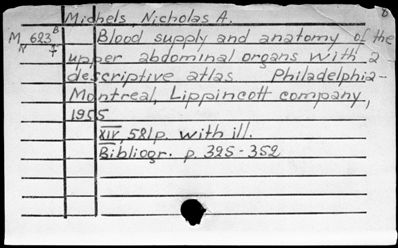 Michels, Nicholas A.
M 623 B Blood supply and anatomy of the
N 7 upper abdominal organs with a
descriptive atlas Philadelphia-
Montreal, Lippincott company,
1955
XIV, 581 p. with ill.
Bibliogr. p. 325-352